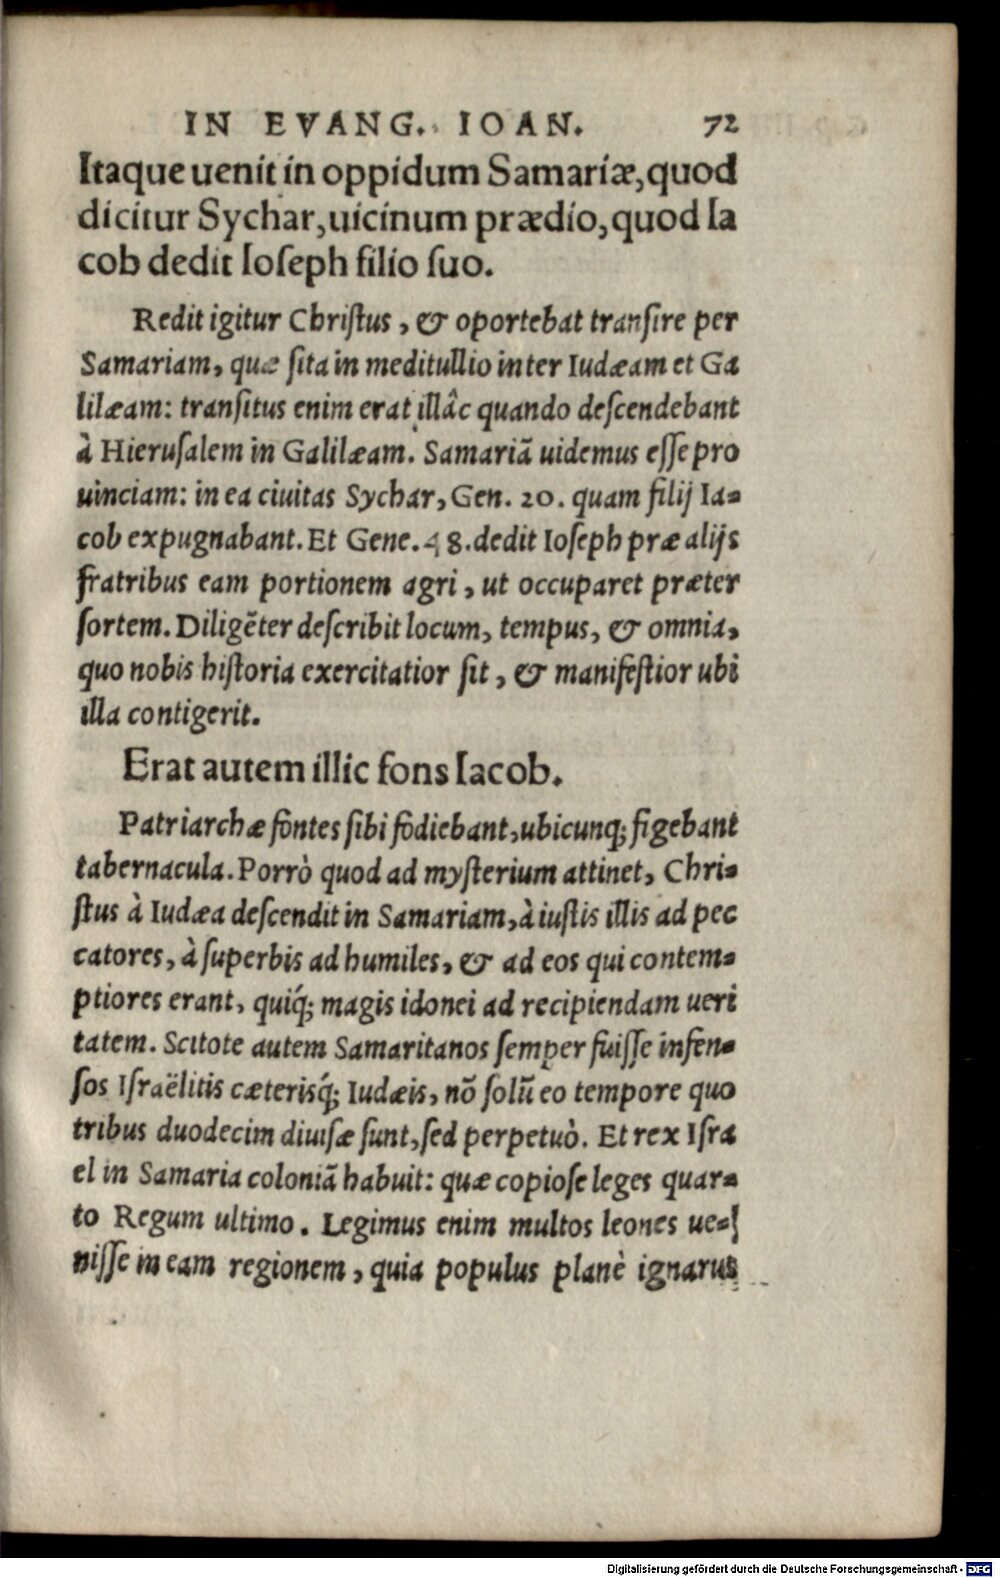 IN EVANG. IOAN. 72
Itaque uenit in oppidum Samariæ, quod
dicitur Sychar, uicinum prædio, quod Ia
cob dedit Ioseph filio suo.
Redit igitur Christus, & oportebat transire per
Samariam, quæ sita in meditullio inter Iudæam et Ga
lilæam: transitus enim erat illâc quando descendebant
à Hierusalem in Galilæam. Samariã uidemus esse pro
uinciam: in ea ciuitas Sychar, Gen. 20. quam filij Ia-
cob expugnabant. Et Gene. 48. dedit Ioseph præ alijs
fratribus eam portionem agri, ut occuparet præter
sortem. Diligẽter describit locum, tempus, & omnia,
quo nobis historia exercitatior sit, & manifestior ubi
illa contigerit.
Erat autem illic fons Iacob.
Patriarchæ fontes sibi fodiebant, ubicunq; figebant
tabernacula. Porrò quod ad mysterium attinet, Chri-
stus à Iudæa descendit in Samariam, à iustis illis ad pec
catores, à superbis ad humiles, & ad eos qui contem-
ptiores erant, quiq́; magis idonei ad recipiendam ueri
tatem. Scitote autem Samaritanos semper fuisse infen-
sos Israëlitis cæterisq́; Iudæis, nõ solũ eo tempore quo
tribus duodecim diuisæ sunt, sed perpetuò. Et rex Isra
el in Samaria coloniã habuit: quæ copiose leges quar-
to Regum ultimo. Legimus enim multos leones ue-
nisse in eam regionem, quia populus planè ignarus
Digitalisierung gefördert durch die Deutsche Forschungsgemeinschaft - DFG